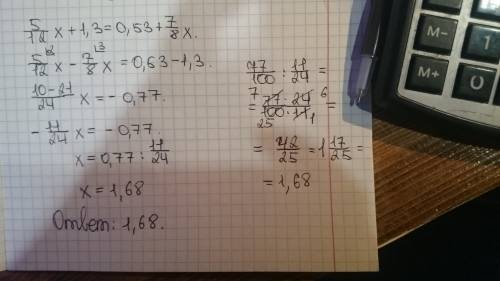 5/12 x + 1,3 = 0,53 + 7/8 x.
5/12 \2 x - 7/8 \3 x = 0,53 - 1,3.
10-21/24 x = - 0,77.
- 11/24 x = - 0,77.
x = 0,77 : 11/24
x = 1,68
Ответ: 1,68.
77/100 : 11/24 =
= 7 77 · 24 6 / 25 100 · 11 1 =
= 42/25 = 1 17/25 =
= 1,68
M-
M+
1
0